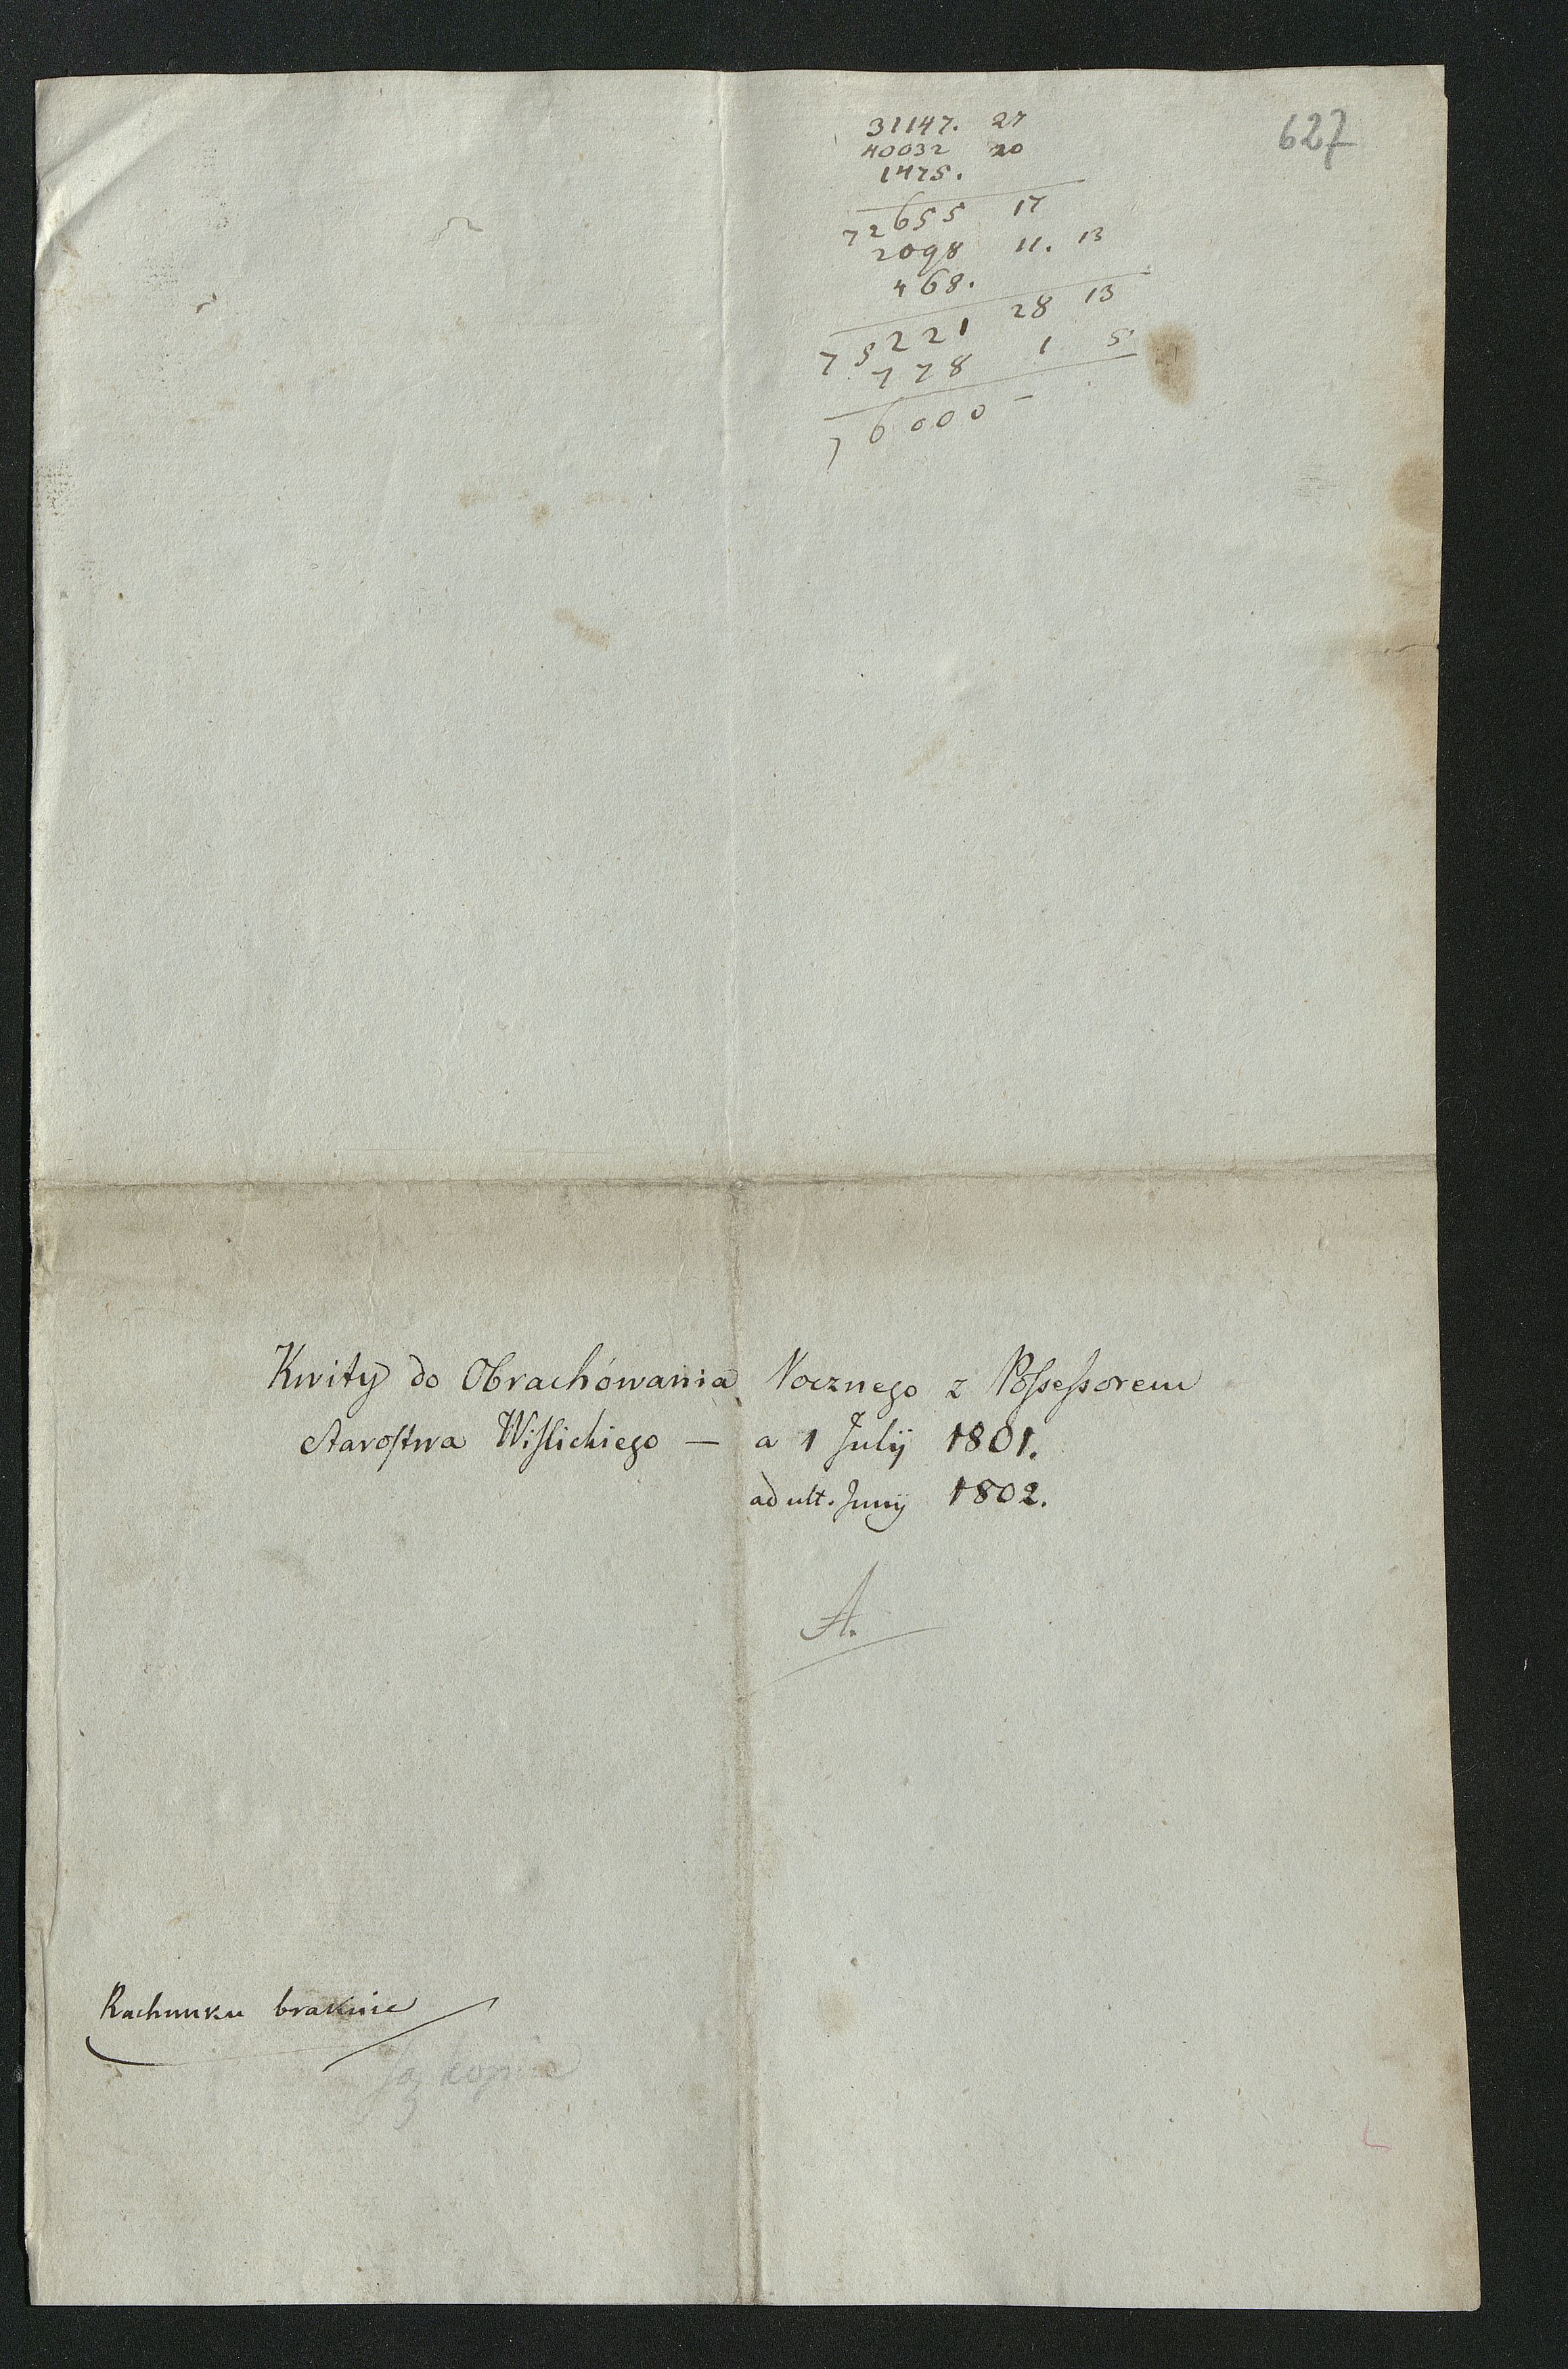 627
31147. 27
40032 20
1475.
72655 17
2098 11. 13
468.
75221 28 13
778 1 5
76000 -
Kwity do Obrachówania Rocznego z Possessorem
Starostwa Wislickiego — a 1 Julÿ 1801.
ad ult. Junÿ 1802.
A.
Rachunku braknie